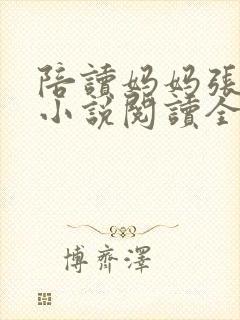 陪讀妈妈張
小說閱讀全
博齊澤